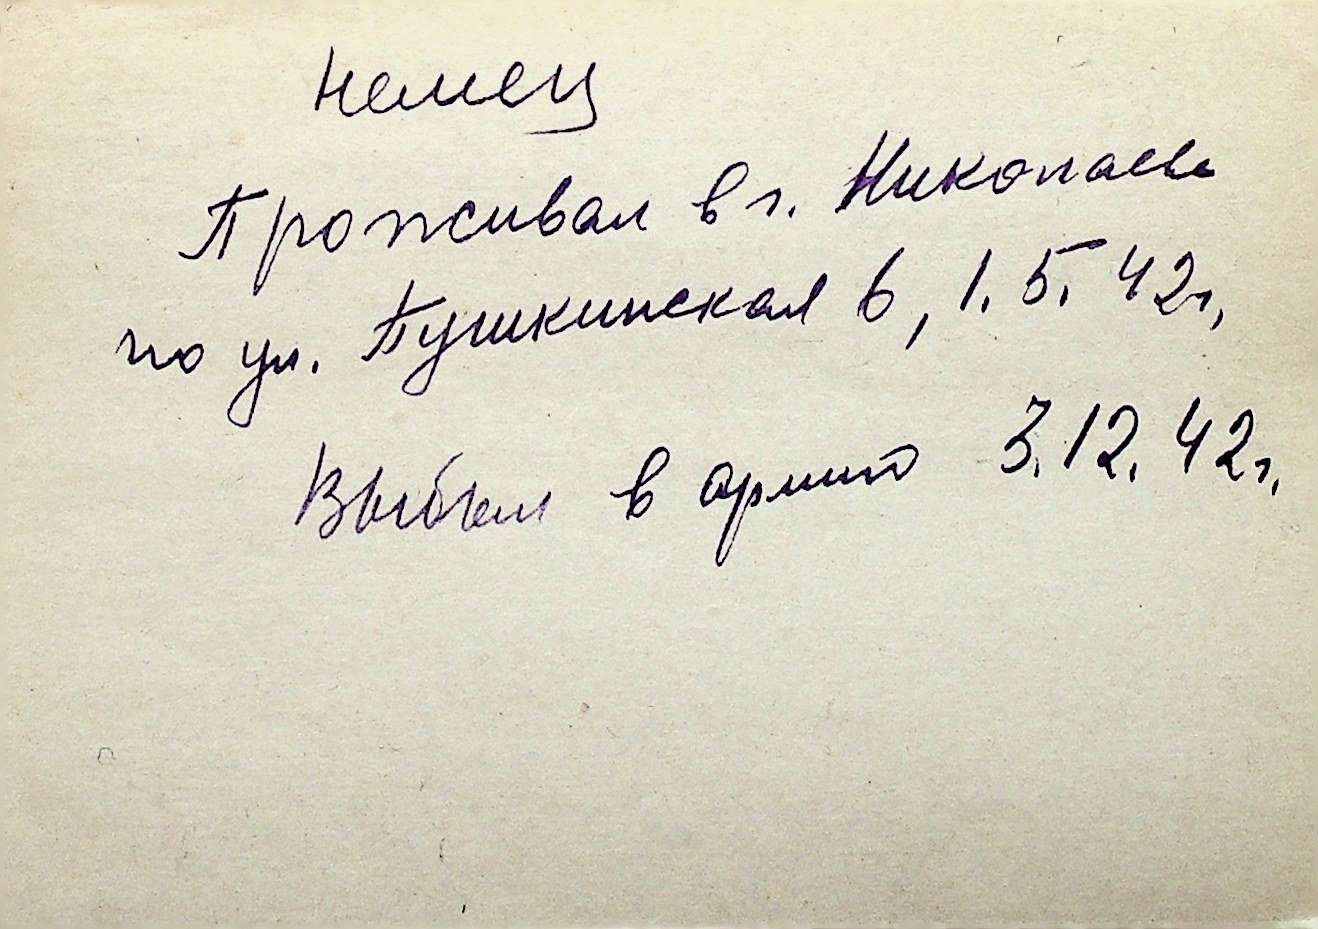 немец
Проживал в г. Николаеве
по ул. Пушкинская 6, 1.5.42г,
Выбыл в армию 3.12.42г.